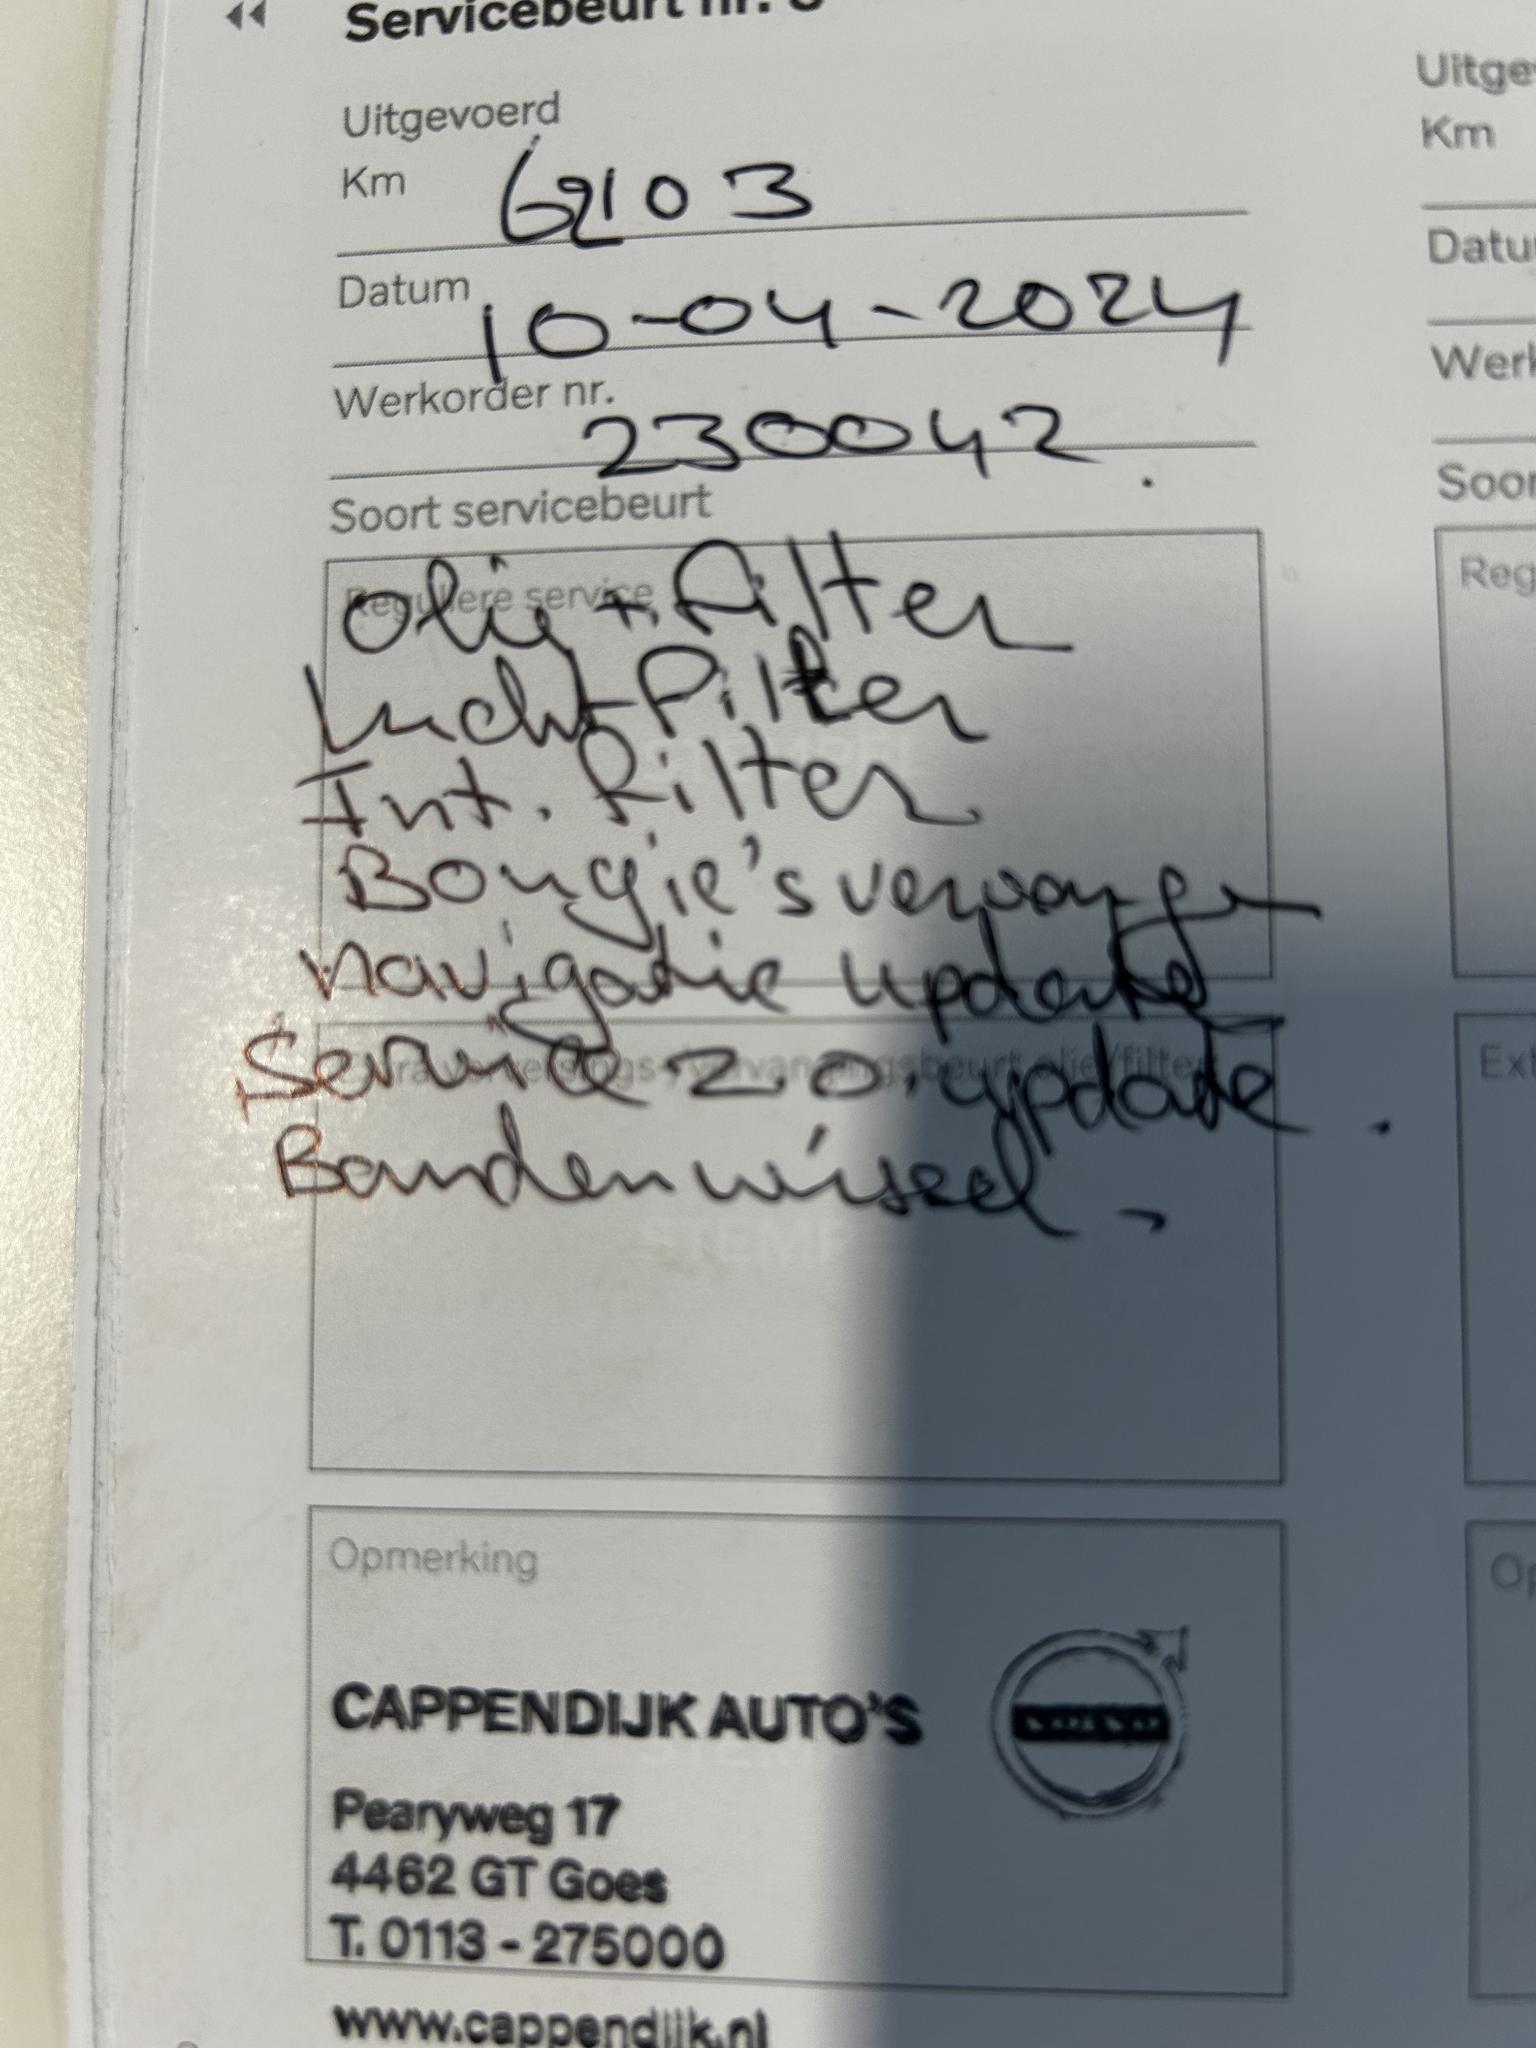 Servicebeurt nr.
Uitgevoerd
Km 62103
Datum 10-04-2024
Werkorder nr. 230042
Soort servicebeurt
Reguliere service
Olie + Filter
Luchtfilter
Int. Filter
Bougie's vervangen
navigatie update
Service 2.0. update.
Bandenwissel
STEMPEL
Opmerking
CAPPENDIJK AUTO'S
VOLVO
Pearyweg 17
4462 GT Goes
T. 0113 - 275000
www.cappendijk.nl
Uitge
Km
Datu
Werk
Soor
Reg
Ext
Op